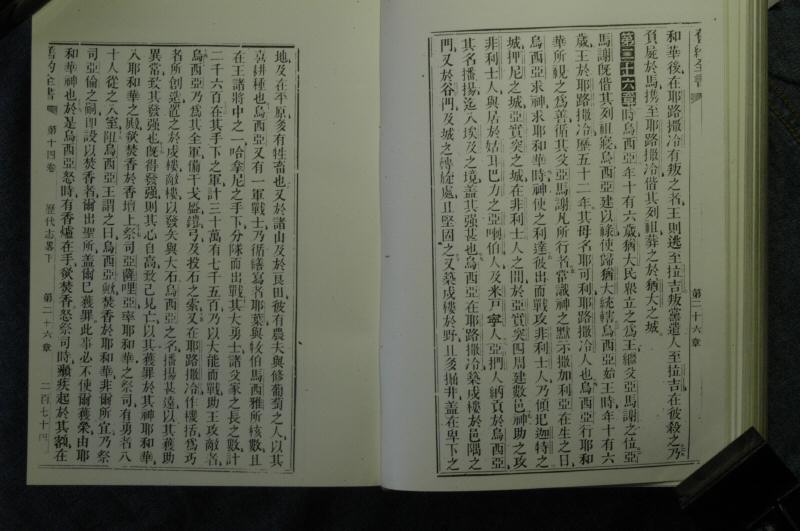 舊約全書
第二十六章
和華後在耶路撒冷有叛之者王則逃至拉吉叛黨遣人至拉吉在彼殺之乃
負屍於馬携至耶路撒冷偕其列祖葬之於猶大之城
第二十六章時烏西亞年十有六歲猶大民衆立之為王繼父亞馬謝之位亞
馬謝旣偕其列祖寢烏西亞建以祿使歸猶大統轄烏西亞始王時年十有六
歲王於耶路撒冷歷五十二年其母名耶可利耶路撒冷人也烏西亞行耶和
華所視之為善循其父亞馬謝凡所行者當識神之默示撒加利亞在生之日
烏西亞求神求耶和華時神使之利達彼出而戰攻非利士人乃傾圯迦特之
城押尼之城亞實突之城在非利士人之間於亞實突四周建數邑神助之攻
非利士人與居於姑耳巴力之亞喇伯人及米戸寧人亞捫人納貢於烏西亞
其名播揚迄入埃及之境蓋其強甚也烏西亞在耶路撒冷築成樓於邑隅之
門又於谷門及城之轉旋處且堅固之又築成樓於野且多掘井蓋在卑下之
地及在平原多有牲畜也又於諸山及於良田彼有農夫與修葡萄之人以其
喜耕種也烏西亞又有一軍戰士乃循繕寫者耶葉與校伯馬西雅所核數且
在王諸將中之一哈拿尼之手下分隊而出戰其大勇士諸父家之長之數計
二千六百在其手下之軍計三十萬有七千五百乃以大能而戰助王攻敵者
烏西亞乃為其全軍備干戈盔鎧弓及投石之索又在耶路撒冷作機括為巧
者所創造置之於戍樓敵樓以發矢與大石烏西亞之名播揚甚遠以其獲助
異常致其發強也旣得發強則其心自高致己見亡以其獲罪於其神耶和華
入耶和華之殿欲焚香於香壇上祭司亞薩哩亞率耶和華之祭司有勇者八
十人從之入室阻烏西亞王謂之曰烏西亞歟焚香於耶和華非爾所宜乃祭
司亞倫之嗣即設以焚香者爾出聖所蓋爾已獲罪此事必不使爾獲榮由耶
和華神也於是烏西亞怒時有香爐在手欲焚香怒祭司時癩疾起於其額在
舊約全書
第十四卷
歷代志畧下
第二十六章
二百七十四